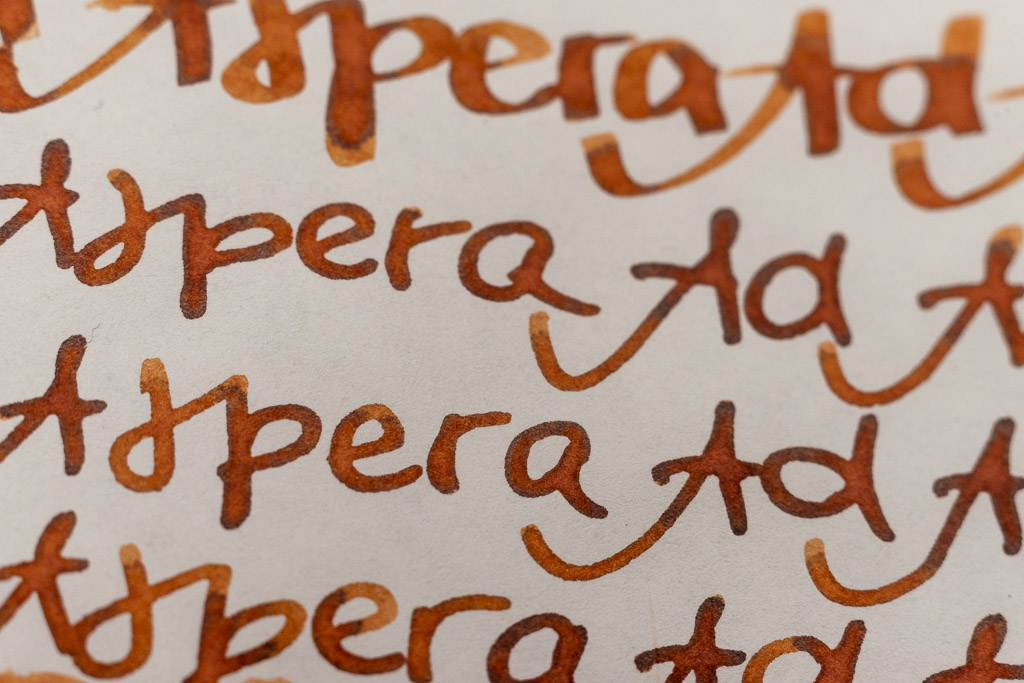 Aspera Ad
Aspera Ad A
Aspera Ad A
Aspera Ad A